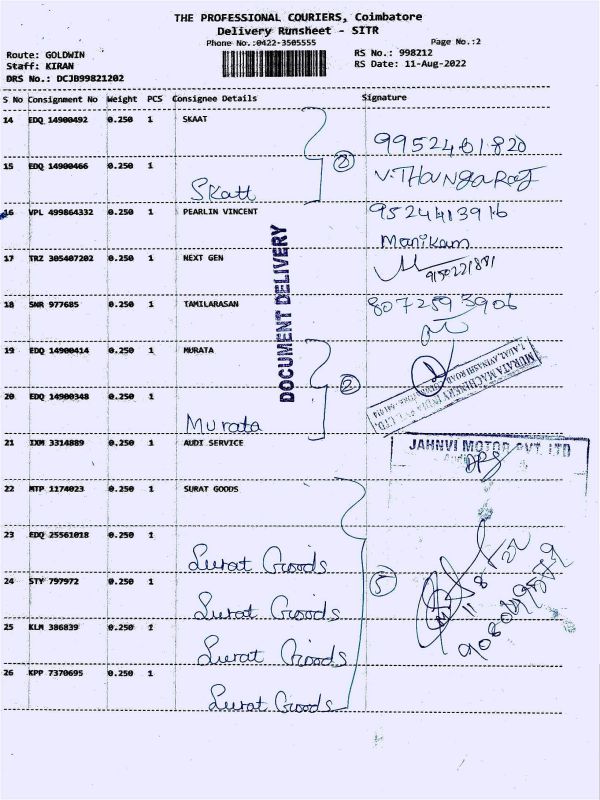 THE PROFESSIONAL COURIERS, Coimbatore
Delivery Runsheet - SITR
Phone No.:0422-3505555
Page No.:2
Route: GOLDWIN
RS No.: 998212
Staff: KIRAN
RS Date: 11-Aug-2022
DRS No.: DCJB99821202
S No Consignment No Weight PCS Consignee Details Signature
14 EDQ 14900492 0.250 1 SKAAT
9952401820
15 EDQ 14900466 0.250 1
Skatt
V.Thangaraj
16 VPL 499864332 0.250 1 PEARLIN VINCENT
9524413916
Manikam
17 TRZ 305407202 0.250 1 NEXT GEN
9150221881
18 SNR 977685 0.250 1 TAMILARASAN
8072593906
DOCUMENT DELIVERY
19 EDQ 14900414 0.250 1 MURATA
2
MURATA MACHINERY INDIA PVT. LTD.
AVINASHI ROAD
20 EDQ 14900348 0.250 1
Murata
21 IXM 3314889 0.250 1 AUDI SERVICE
JAHNVI MOTOR PVT. LTD
22 MTP 1174023 0.250 1 SURAT GOODS
23 EDQ 25561018 0.250 1
Surat Goods
24 STY 797972 0.250 1
5
Surat Goods
11/8/22
25 KLM 386839 0.250 1
Surat Goods
26 KPP 7370695 0.250 1
Surat Goods